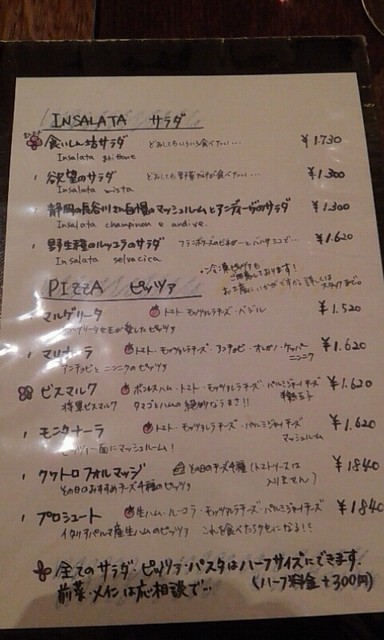 INSALATA サラダ
食いしん坊サラダ どうしてもいろいろ食べたい… ¥1.730
Insalata
欲望のサラダ どうしても野菜だけが食べたい… ¥1.300
Insalata mista
静岡の長谷川さん自慢のマッシュルームとアンディーヴのサラダ ¥1.300
Insalata champinon e andive.
野生種のルッコラのサラダ ¥1.620
Insalata selvacica
・冷凍ピッツァもご用意しております!
PIZZA ピッツァ
マルゲリータ トマト・モッツァレラチーズ・バジル ¥1.520
マルゲリータ女王が愛したピッツァ
マリナーラ トマト・モッツァレラチーズ・アンチョビ・オレガノ・ケッパー ¥1.620
ニンニク
アンチョビとニンニクのピッツァ
ビスマルク ボンレスハム・トマト・モッツァレラチーズ・パルミジャーノチーズ ¥1.620
半熟玉子
将軍ビスマルク タマゴとハムの絶妙なうまさ!!
モニタナーラ トマト・モッツァレラチーズ・パルミジャーノチーズ ¥1.620
マッシュルーム
ピッツァ一面にマッシュルーム!
クワトロフォルマッジ その日のチーズ4種(トマトソースは ¥1840
入りません)
その日のおすすめチーズ4種のピッツァ
プロシュート 生ハム・ルーコラ・モッツァレラチーズ・パルミジャーノチーズ ¥1840
イタリアパルマ産生ハムのピッツァ これを食べたらクセになる!!
全てのサラダ・ピッツァ・パスタはハーフサイズにできます.
前菜・メインは応相談で… (ハーフ料金+300円)